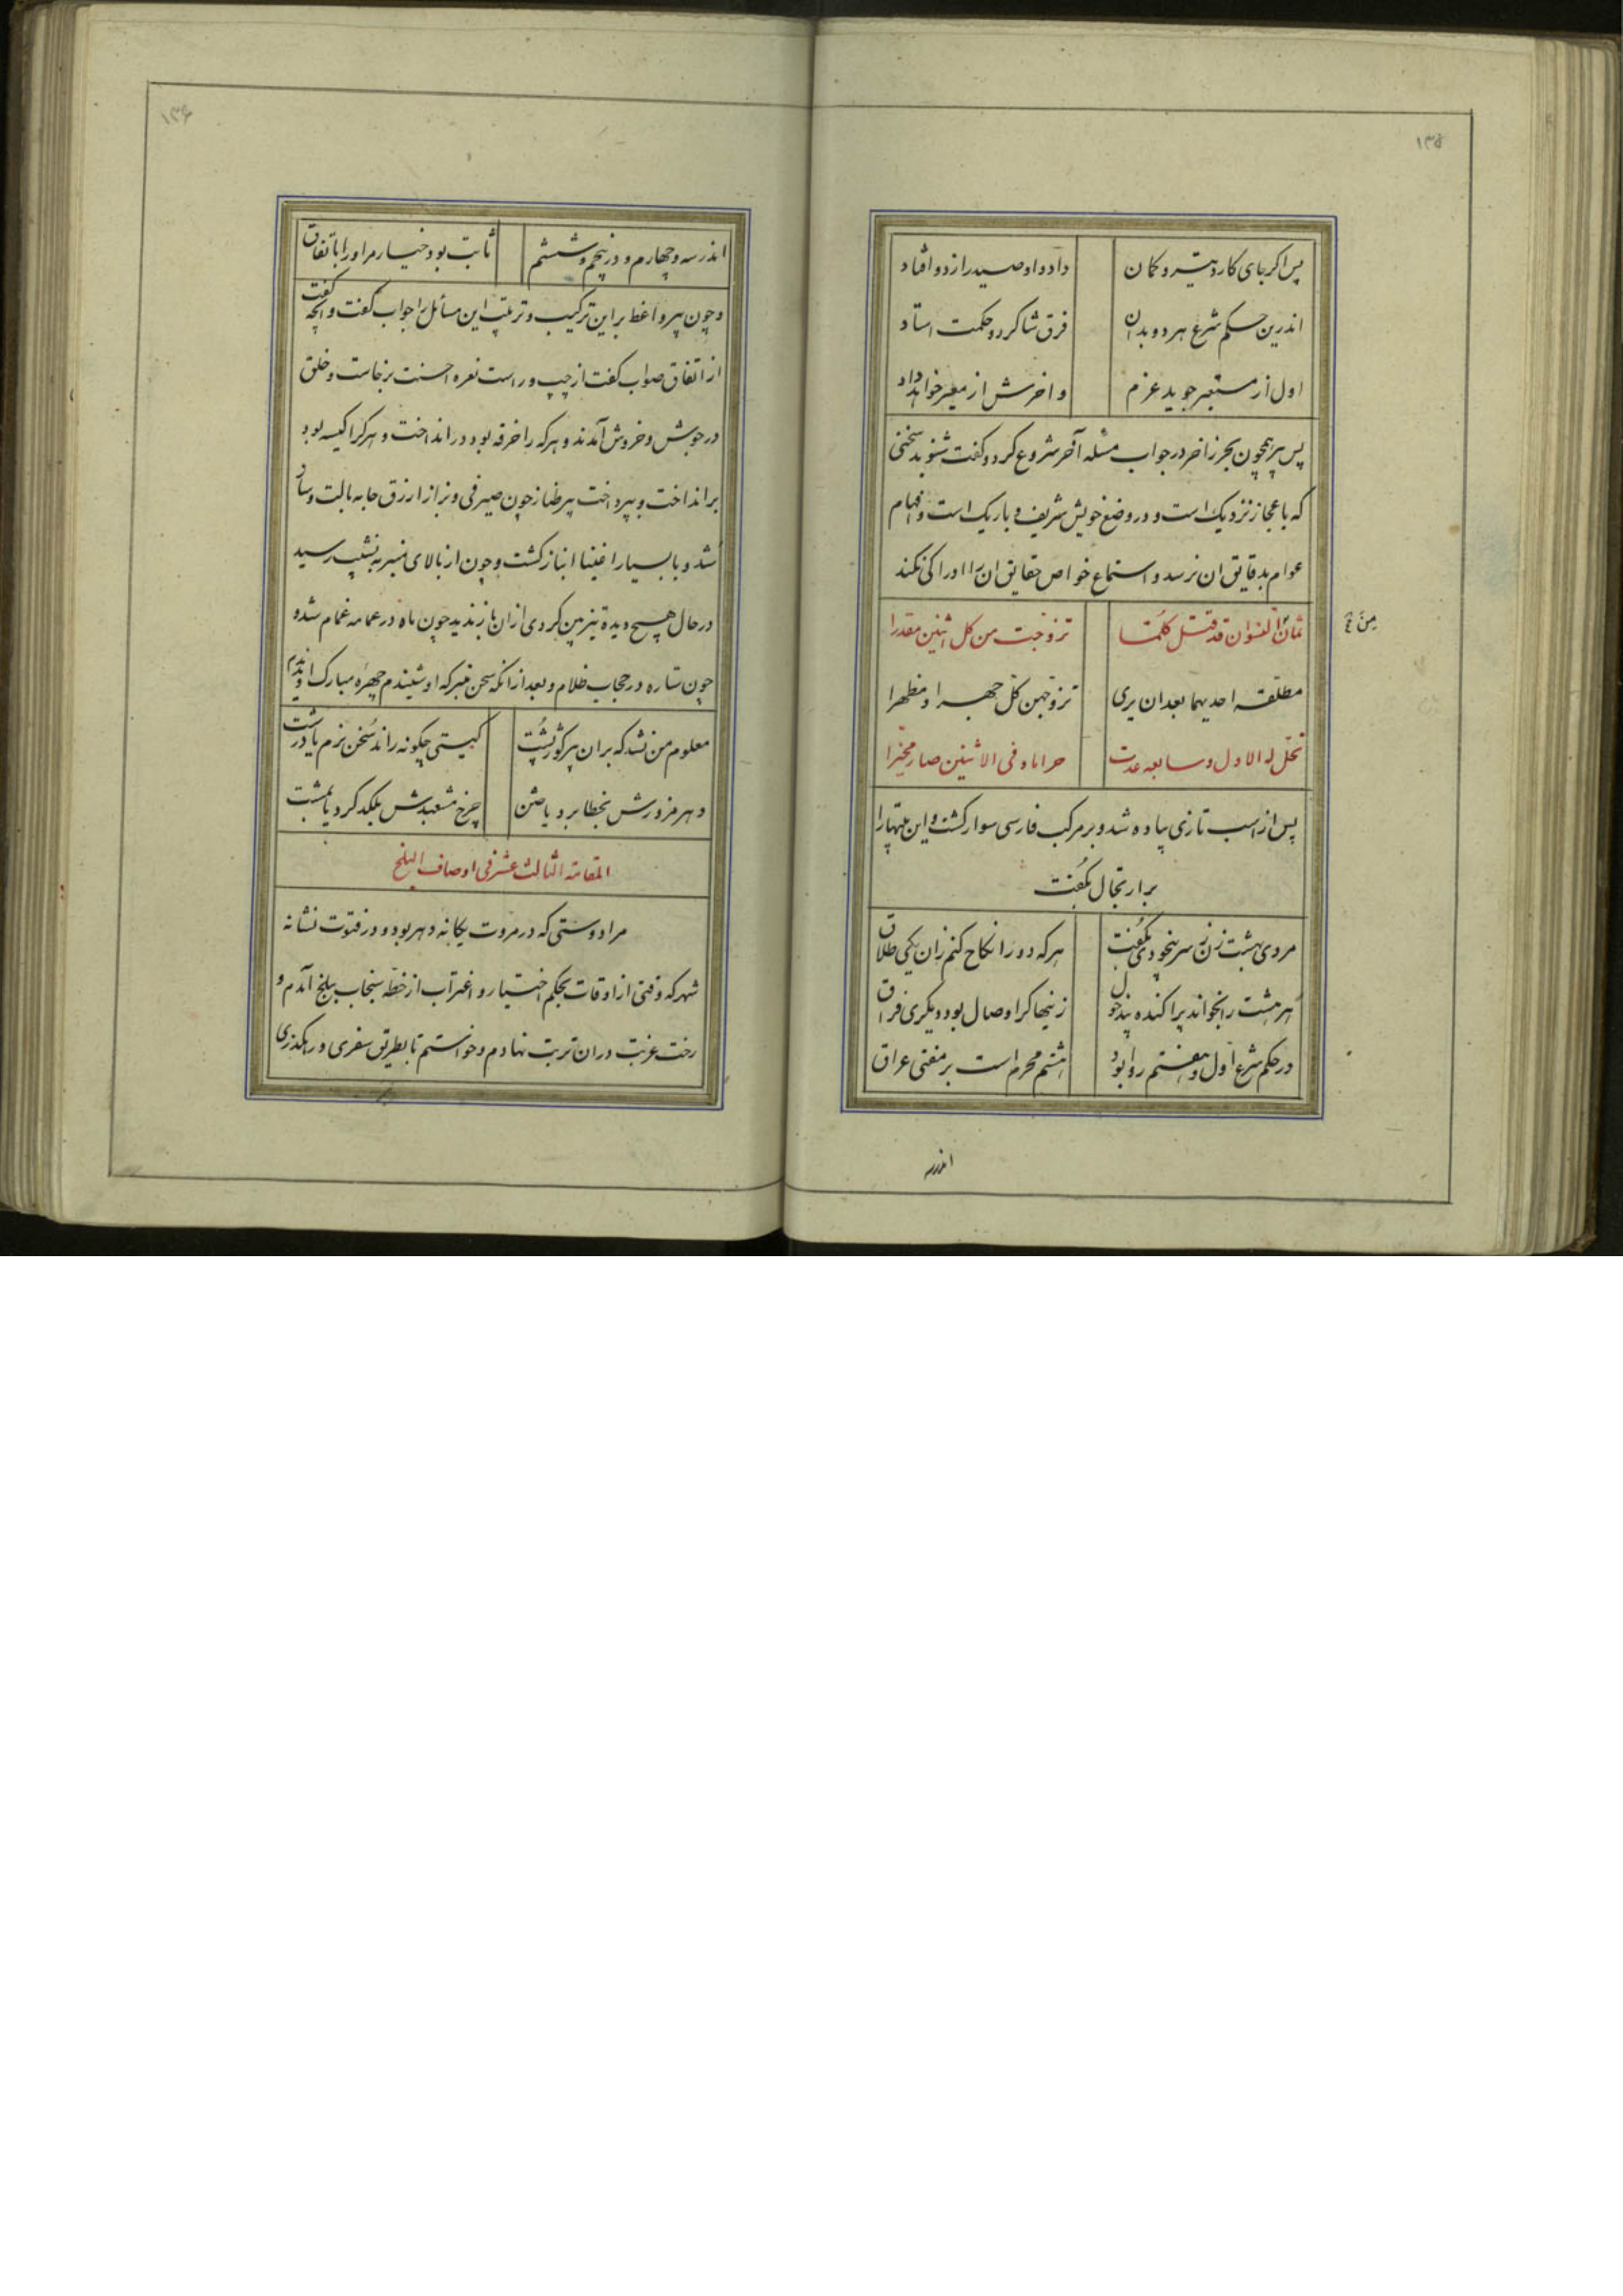 ۱۳۵
پس اگر بجای کارد تیر و کمان
داد و او صید را ز دو افتاد
اندرین حکم شرع هر دو بدان
فرق شاگرد و حکمت استاد
اول از مستعیر جوید عزم
و اخرش از معیر خواهد داد
پس پیر همچون بحر زاخر در جواب مسئله آخر شروع کرد و گفت شنوید سخنی
که با عجاز نزدیک است و در وضع خویش شریف و باریک است و افهام
عوام بدقایق ان نرسد و استماع خواص حقایق ان را ادراک نکند
ثمان النسوان قد قتل کلمتا
تزوجت من کل اثنین مقدرا
مطلقه احدیهما بعد ان یری
تزوجهن کل جهرا و مظهرا
تحل له الاول و سابعه عدت
حراما و فی الاثنین صار مخیرا
پس از اسب تازی پیاده شد و بر مرکب فارسی سوار گشت و این بیتها را
بر ارتجال بگفت
مردی بهشت زن ز سر بیخودی بگفت
هرکه دو را نکاح کنم زان یکی طلاق
هر هشت را بخواند پراکنده
زینها کرا وصال بود و یکری فراق
در حکم شرع اول و هفتم روا بود
هشتم محرم است بر مفتی عراق
اندرسه
۱۳۶
اندر سه و چهارم و در پنجم و ششم
ثابت بود خیار مر او را باتفاق
و چون پیر واعظ بر این ترکیب و ترتیب این مسائل را جواب گفت و انچه گفت
از اتفاق صواب گفت از چپ و راست نعره احسنت برخاست و خلق
در جوش و خروش آمدند و هرکه را خرقه بود در انداخت و هرکرا کیسه بود
برانداخت و بپرداخت پیر طناز چون صیرفی و بزاز از زق جامه بالت و ساز
شد و با بسیار اغنیا انباز گشت و چون از بالای منبر به نشیب رسید
در حال هیچ دیده تیزبین کردی ازان باز ندید چون ماه در عمامه غمام شد و
چون ستاره در حجاب ظلام و بعد از انکه سخن متبرکه او شنیدم چهره مبارک او ندیدم
معلوم من نشد که بران پیر کوژ پشت
گیتی چگونه راند سخن نرم یا درشت
دهر مزورش بخطا برد یا ختن
چرخ مشعبدش بلگد کرد یا بمشت
المقامة الثالث عشر فی اوصاف البلخ
مرا دوستی که در مروت یکانه دهر بود و در فتوت نشانه
شهر که وقتی از اوقات بحکم اختیار و اغتراب از خطه سنجاب ببلخ آمدم و
رخت غربت دران تربت نهادم و خواستم تا بطریق سفری و رهگذری